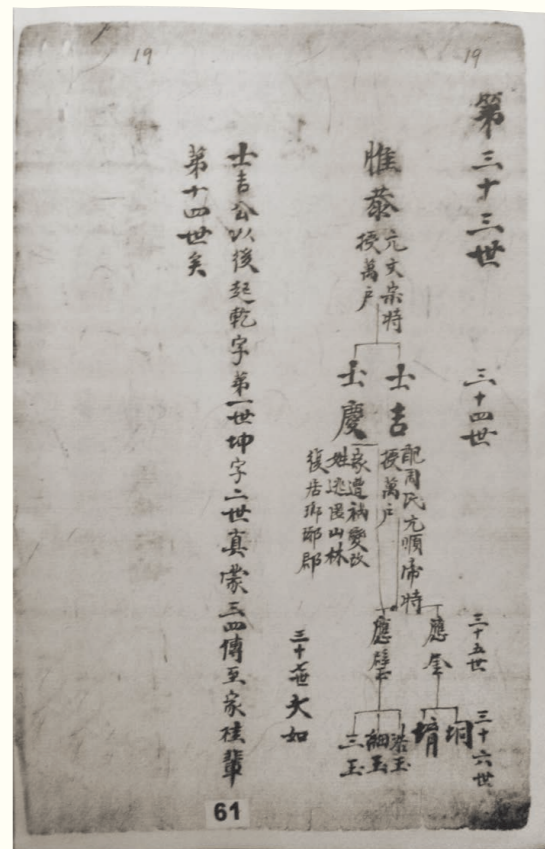 19
19
第三十三世
三十四世
三十五世
三十六世
惟恭
元文宗時
授萬戶
士吉
配周氏元順帝時
授萬戶
士慶
家遭禍變改
姓逃匿山林
復居瑯琊郡
應奎
應璧
垌
堉
浩玉
細玉
三玉
三十七世大如
士吉公以後起乾字第一世坤字二世真蒙三四傳至家桂輩
第十四世矣
61